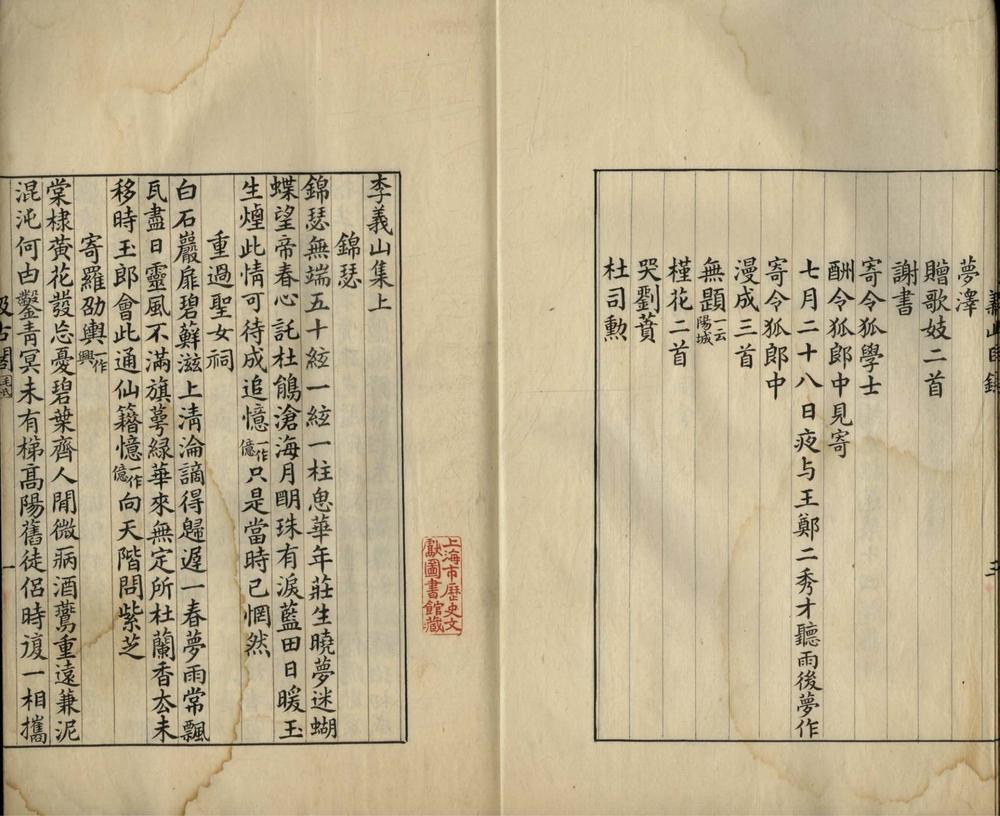 夢澤
贈歌妓二首
謝書
寄令狐學士
酬令狐郎中見寄
七月二十八日夜与王鄭二秀才聽雨後夢作
寄令狐郎中
漫成三首
無題一云陽城
槿花二首
哭劉蕡
杜司勳
上海市歷史文獻圖書館藏
李義山集上
錦瑟
錦瑟無端五十絃一絃一柱思華年莊生曉夢迷蝴
蝶望帝春心託杜鵑滄海月明珠有淚藍田日暖玉
生煙此情可待成追憶一作億只是當時已惘然
重過聖女祠
白石巖扉碧蘚滋上清淪謫得歸遲一春夢雨常飄
瓦盡日靈風不滿旗萼綠華來無定所杜蘭香去未
移時玉郎會此通仙籍憶一作億向天階問紫芝
寄羅劭輿一作興
棠棣黃花發忘憂碧葉齊人閒微病酒鷰重遠兼泥
混沌何由鑿青冥未有梯高陽舊徒侶時復一相攜